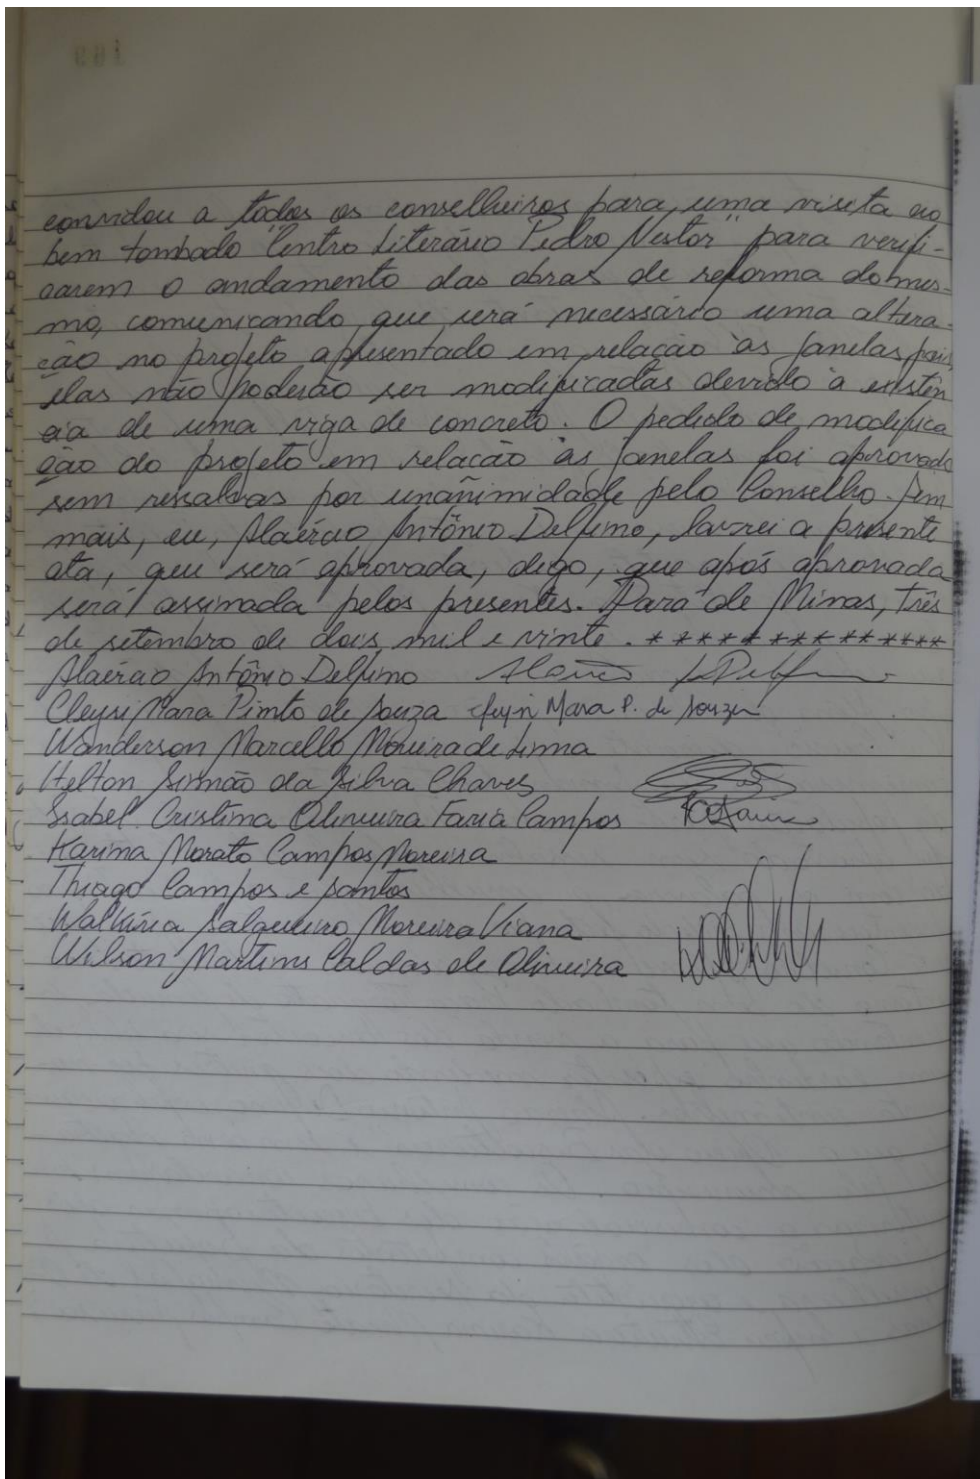 convidou a todos os conselheiros para uma visita ao
bem tombado "Centro Literário Pedro Nestor" para verifi-
carem o andamento das obras de reforma do mes-
mo, comunicando que será necessário uma altera-
ção no projeto apresentado em relação às janelas pois
elas não poderão ser modificadas devido à existên
cia de uma viga de concreto. O pedido de modifica
ção do projeto em relação às janelas foi aprovado
sem ressalvas por unanimidade pelo Conselho. Sem
mais, eu, Alaércio Antônio Delfino, lavrei a presente
ata, que será aprovada, digo, que após aprovada
será assinada pelos presentes. Pará de Minas, três
de setembro de dois mil e vinte. * * * * * * * * * * * * * *
Alaércio Antônio Delfino
Cleysi Mara Pinto de Souza Cleysi Mara P. de Souza
Wanderson Marcello Moreira de Lima
Helton Simão da Silva Chaves
Isabel Cristina Oliveira Faria Campos
Karina Morato Campos Moreira
Thiago Campos e Santos
Walkíria Salgueiro Moreira Viana
Wilson Martins Caldas de Oliveira